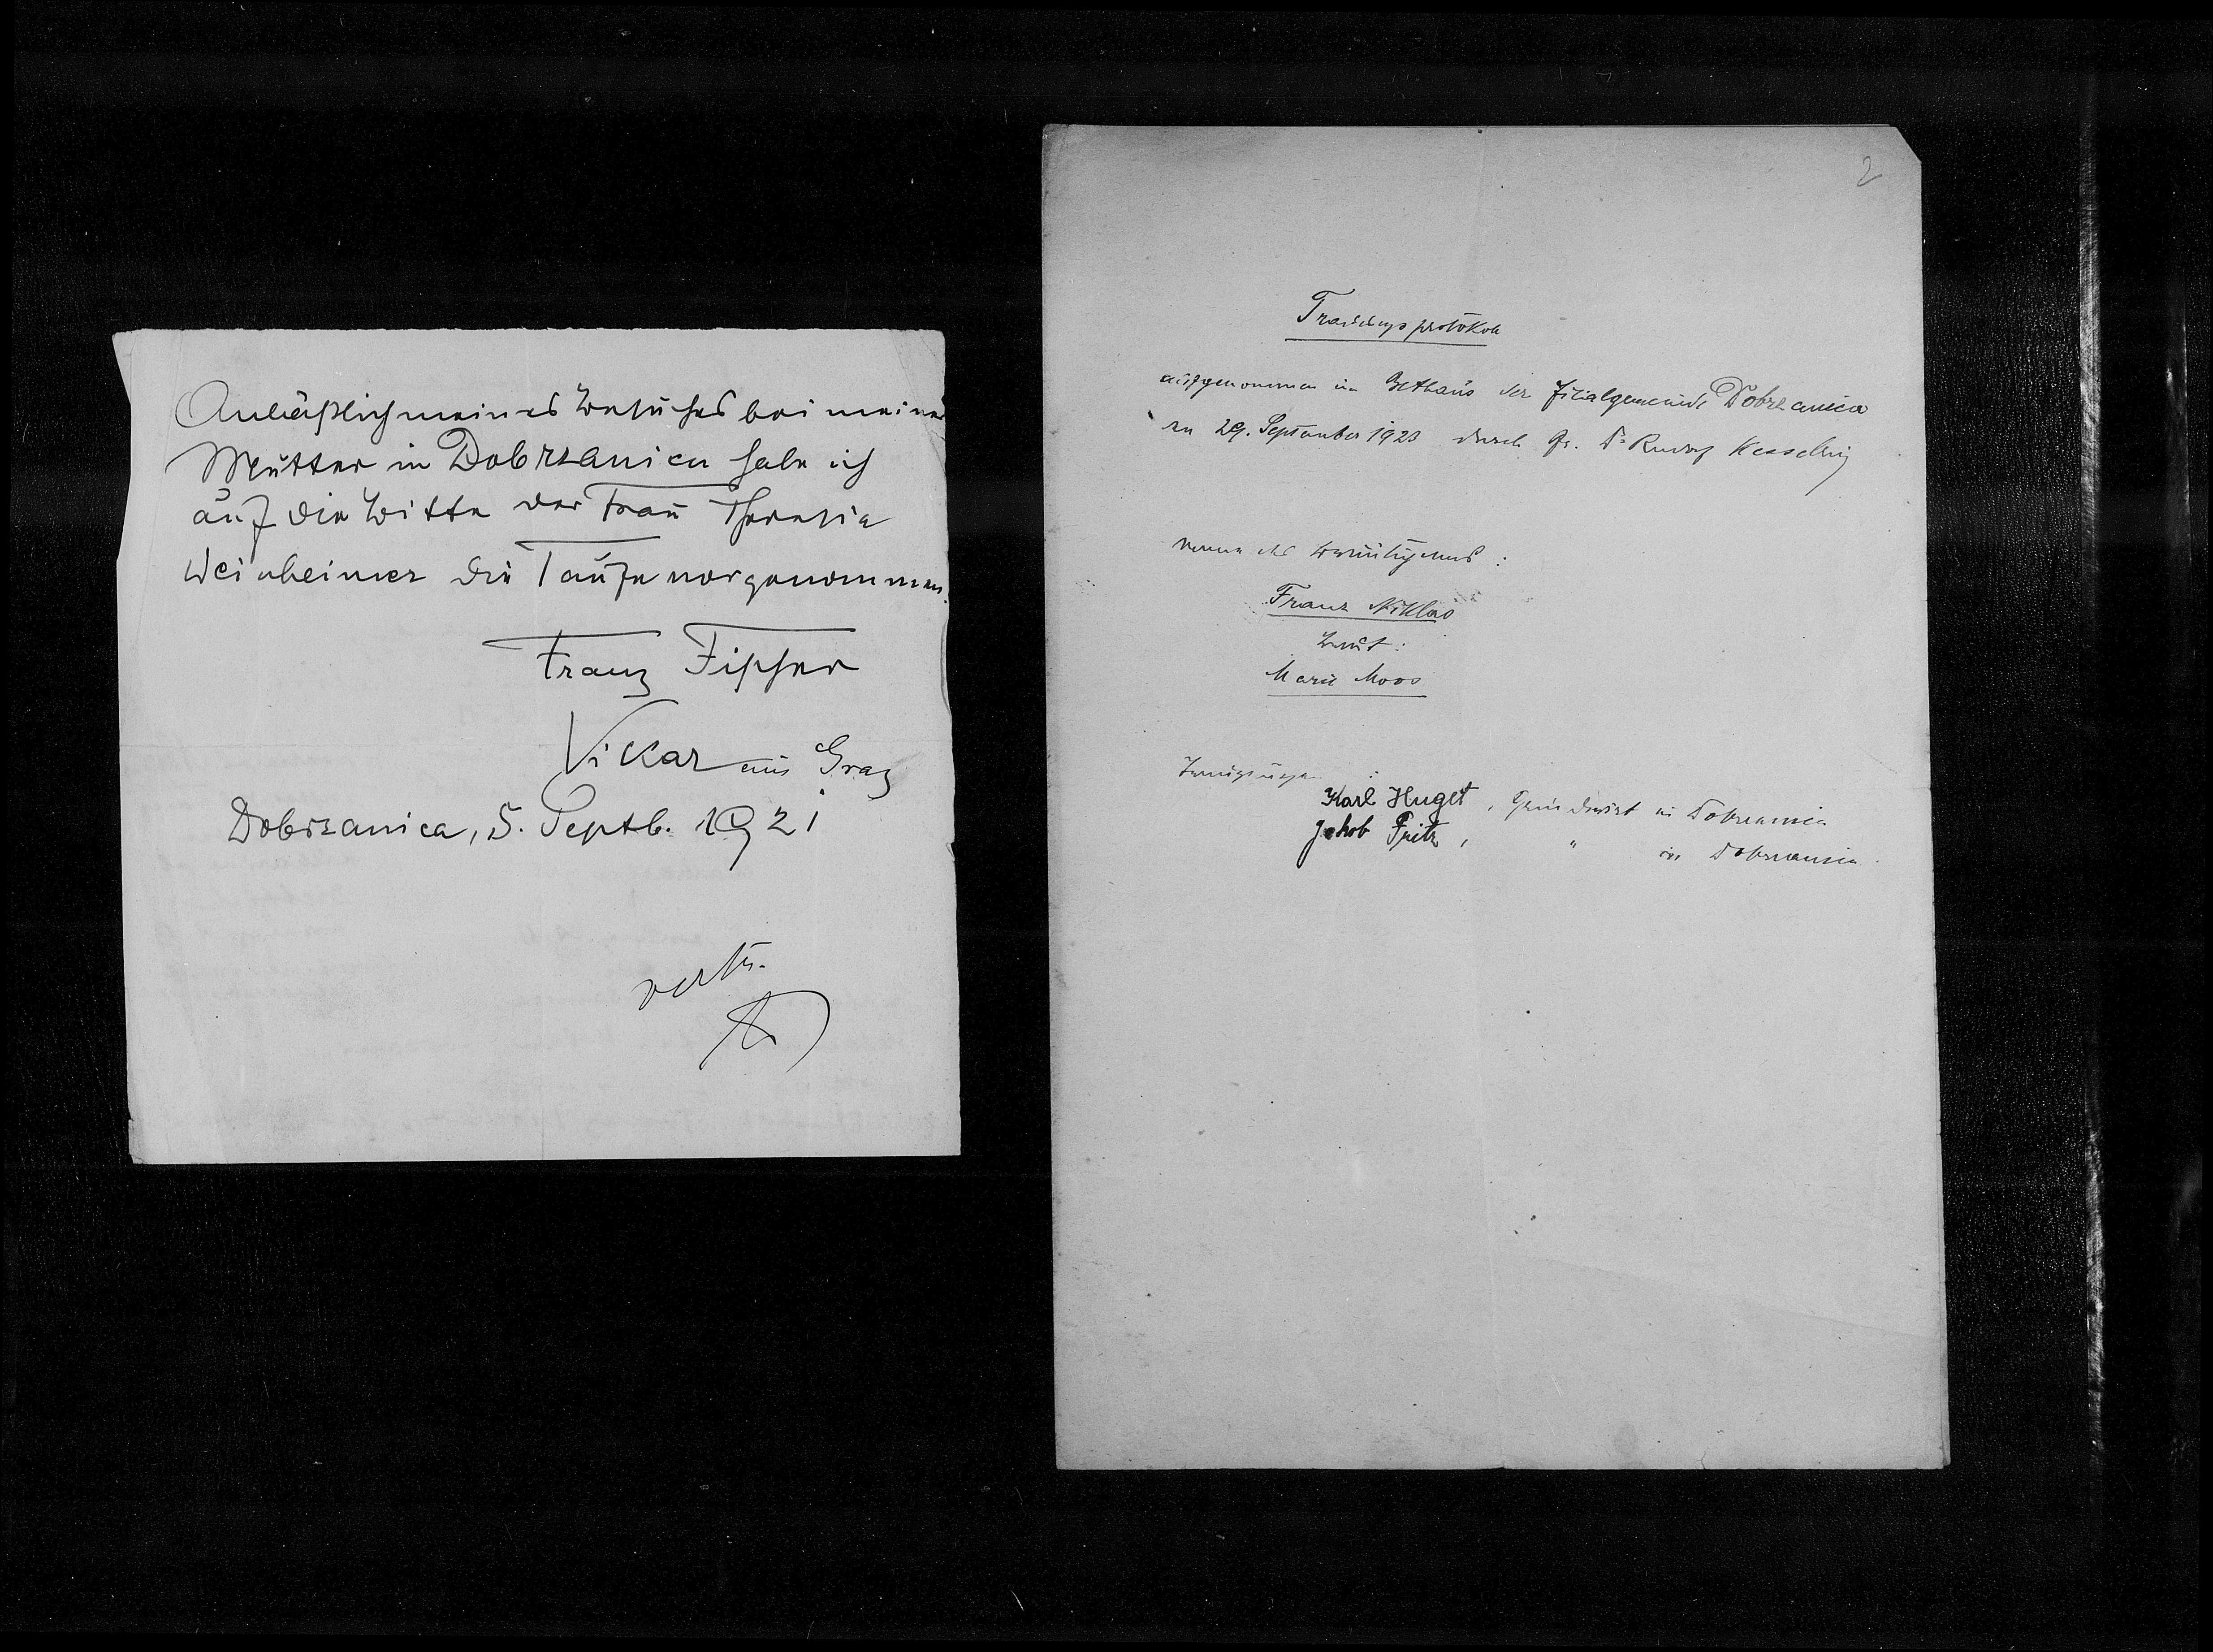 Anläßlich meines Besuches bei meiner
Mutter in Dobrzanica habe ich
auf die Bitte der Frau Theresia
Weinheimer die Taufe vorgenommen.
Franz Fischer
Vikar aus Graz
Dobrzanica, 5. Septb. 1921
vertu.
2
Trauungsprotokoll
aufgenommen im Bethaus der Filialgemeinde Dobrzanica
am 29. September 1923 durch Pfr. Dr Rudolf Kesselring
Name des Bräutigams:
Franz Niklas
Braut:
Marie Moos
Karl Huget, Grundwirt in Dobrzanica
Jakob Fritz, " in Dobrzanica.